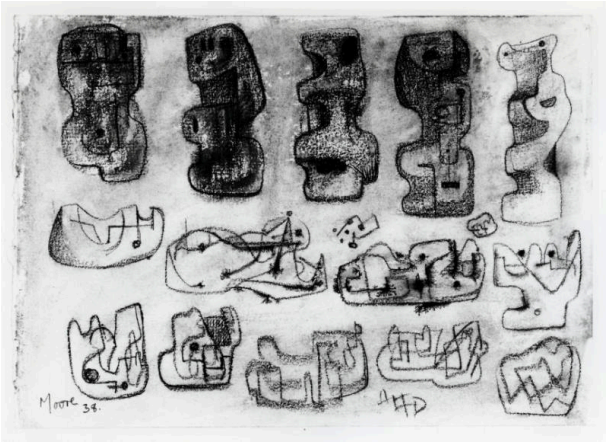 Moore
38.